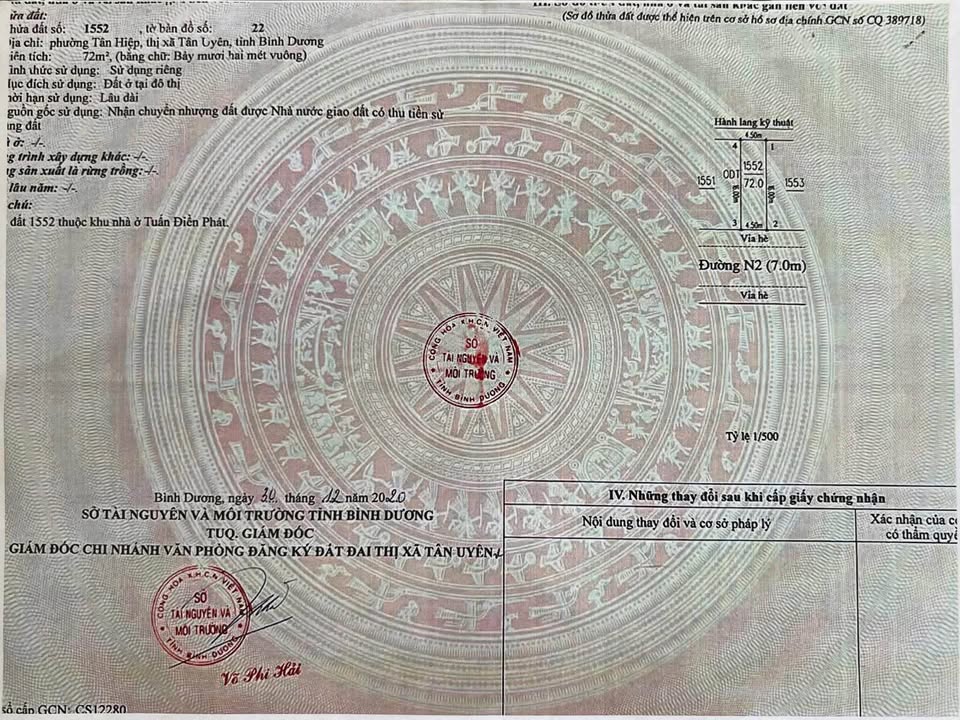 ửa đất:
hửa đất số: 1552 , tờ bản đồ số: 22
ịa chỉ: phường Tân Hiệp, thị xã Tân Uyên, tỉnh Bình Dương
iện tích: 72m², (bằng chữ: Bảy mươi hai mét vuông)
ình thức sử dụng: Sử dụng riêng
lục đích sử dụng: Đất ở tại đô thị
hời hạn sử dụng: Lâu dài
guồn gốc sử dụng: Nhận chuyển nhượng đất được Nhà nước giao đất có thu tiền sử
ụng đất
à ở: -/-.
g trình xây dựng khác: -/-.
g sản xuất là rừng trồng:-/-.
lâu năm: -/-.
chú:
đất 1552 thuộc khu nhà ở Tuấn Điền Phát.
(Sơ đồ thửa đất được thể hiện trên cơ sở hồ sơ địa chính.GCN số CQ 389718)
Hành lang kỹ thuật
4.50m
4 1
1551 ODT 1552 72.0 1553
16.00m 16.00m
3 4.50m 2
Vỉa hè
Đường N2 (7.0m)
Vỉa hè
Tỷ lệ 1/500
CỘNG HÒA X.H.C.N VIỆT NAM
SỞ
TÀI NGUYÊN VÀ
MÔI TRƯỜNG
TỈNH BÌNH DƯƠNG
Bình Dương, ngày 30 tháng 12 năm 2020
SỞ TÀI NGUYÊN VÀ MÔI TRƯỜNG TỈNH BÌNH DƯƠNG
TUQ. GIÁM ĐỐC
GIÁM ĐỐC CHI NHÁNH VĂN PHÒNG ĐĂNG KÝ ĐẤT ĐAI THỊ XÃ TÂN UYÊN
CỘNG HÒA X.H.C.N VIỆT NAM
SỞ
TÀI NGUYÊN VÀ
MÔI TRƯỜNG
TỈNH BÌNH DƯƠNG
Võ Phi Hải
IV. Những thay đổi sau khi cấp giấy chứng nhận
Nội dung thay đổi và cơ sở pháp lý
Xác nhận của c
có thẩm quyề
số cấp GCN: CS12280